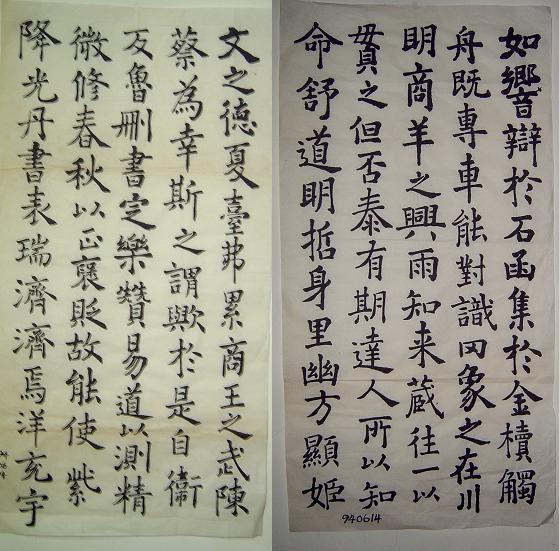 如響辯於石函集於金櫝觸
舟既專車能對識罔象之在川
明商羊之興雨知来蔵往一以
貫之但否泰有期達人所以知
命舒道明哲身里幽方顯姬
940614
文之德夏臺弗累商王之武陳
蔡為幸斯之謂歟於是自衛
反魯刪書定樂贊易道以測精
微修春秋以正褒貶故能使紫
降光丹書表瑞濟濟焉洋充宇